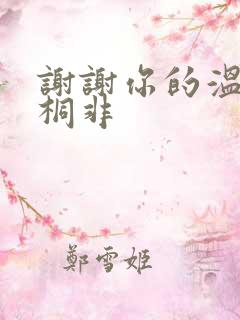 謝謝你的溫
桐非
鄭雪姬